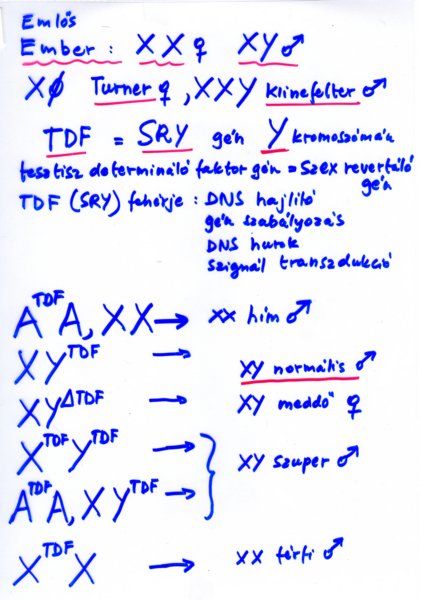 Emlős
Ember: XX♀ XY♂
XØ Turner♀, XXY klinefelter♂
TDF = SRY gén Y kromoszómán
tesztisz determináló faktor gén = szex revertáló
gén
TDF (SRY) fehérje: DNS hajlító
gén szabályozás
DNS hurok
szignál transzdukció
A^TDF A, XX → XX hím ♂
XY^TDF → XY normális ♂
XY^ΔTDF → XY meddő ♀
X^TDF Y^TDF →
XY szuper ♂
A^TDF A, XY^TDF →
X^TDF X → XX férfi ♂